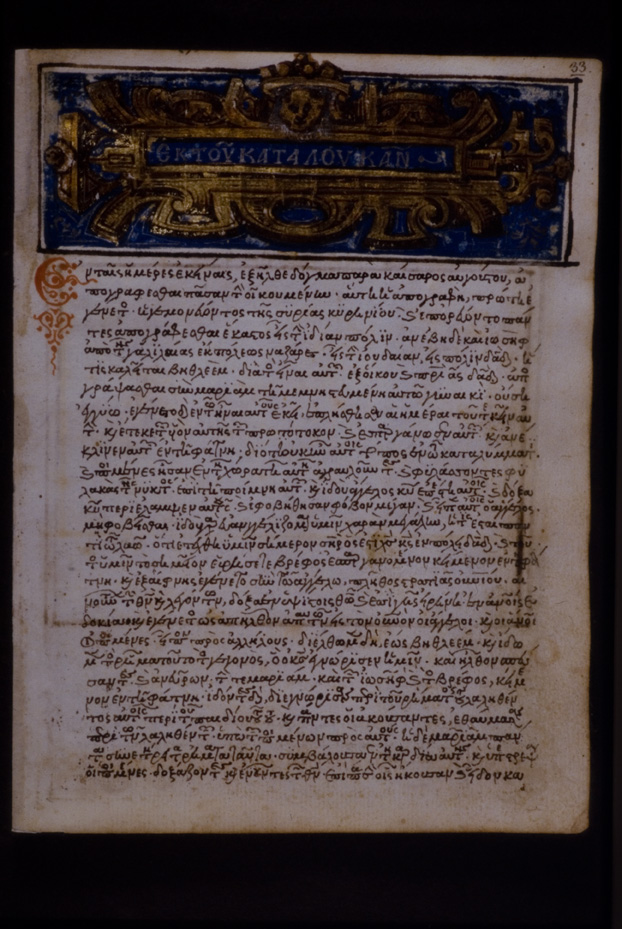 33
ἐκ τοῦ κατα λουκᾶν
Εν ταῖς ἡμέραις ἐκείναις, ἐξῆλθε δόγμα παρὰ καίσαρος αὐγούστου, ἀ
πογράφεσθαι πᾶσαν τ οἰκουμένην · αὕτη ἡ ἀπογραφὴ, πρώτη ἐ
γένετ · ἡγεμονεύοντος τῆς συρίας κυρηνίου · ἐπορεύοντο πάν
τες ἀπογράφεσθαι ἕκαστος εἰς τ ἰδίαν πόλιν · ἀνέβη δὲ καὶ ἰωσὴφ
ἀπὸ τῆς γαλιλαίας ἐκ πόλεως ναζαρετ · εἰς τ ἰουδαίαν, εἰς πόλιν δαδ · ἥ
τις καλεῖται βηθλεέμ · διὰ τ εἶναι αὐτ · ἐξ οἴκου πριᾶς δαδ · ἀπ
γράψασθαι σὺν μαριὰμ τῆ μεμνηστευμένη αὐτῶ γυναικὶ · οὔση
ἐγκύω · ἐγένετο δὲ ἐν τῶ εἶναι αὐτοὺς ἐκεῖ, ἐπλήσθησαν αἱ ἡμέραι τοῦ τεκεῖν αὐ
τ · κ ἔτεκε τ υἱὸν αὐτῆς τ πρωτότοκον · ἐσπαργάνωσεν αὐτ · κ ἀνέ
κλινεν αὐτ ἐν τῆ φάτνη · διότι οὐκ ἦν αὐτοῖς τόπος ἐν τῶ καταλύματι
ποιμένες ἦσαν ἐν τ χώρα τῆ αὐτῆ ἀγραυλοῦντ · φυλάσσοντες φυ
λακὰς τῆς νυκτὸς · ἐπὶ τὴν ποίμνην αὐτ · κ ἰδοὺ ἄγγελος κυ ἐπέστη αὐτοῖς · δόξα
κυ περιέλαμψεν αὐτοὺς · ἐφοβήθησαν φόβον μέγαν · εἶπ αὐτοῖς ὁ ἄγγελος ·
μὴ φοβεῖσθαι · ἰδοὺ γὰρ εὐαγγελίζομαι ὑμῖν χαρὰν μεγάλην, ἥτις ἔσται παν
τὶ τῶ λαῶ · ὅτι ἐτέχθη ὑμῖν σήμερον σηρ ὅς ἐστι χς κς ἐν πόλει δαδ · τοῦ
τ ὑμῖν τὸ σημεῖον εὑρήσετε βρέφος ἐσπαργανωμένον κείμενον ἐν τῆ φά
τνη · κ ἐξαίφνης ἐγένετο σὺν τῶ ἀγγέλω, πλῆθος στρατιᾶς οὐνίου · αἰ
νούντ τ θν κ λεγόντων, δόξα ἐν ὑψίστοις θῶ ἐπὶ γῆς εἰρήνη · ἐν ἀνοῖς εὐ
δοκία · κ ἐγένετο ὡς ἀπῆλθον ἀπ αὐτῶν εἰς τὸν οὐνον οἱ ἄγγελοι · κ οἱ ἀνοι οἱ
ποιμένες · εἶπον πρὸς ἀλλήλους · διέλθωμεν δὴ ἕως βηθλεέμ · κ ἴδω
μ τ ῥῆμα τοῦτο τ γεγονὸς, ὃ ὁ κς ἐγνώρισεν ἡμῖν · καὶ ἦλθον σπεύ
σαντες ἀνεῦρον, τ τε μαριὰμ · καὶ τ ἰωσὴφ τ βρέφος, κεί
νον ἐν τῆ φάτνη · ἰδόντες δὲ, διεγνώρισαν περὶ τοῦ ῥήματος τοῦ λαληθέν
τος αὐτοῖς περὶ τ παιδίου τούτου · κ πάντες οἱ ἀκούσαντες, ἐθαύμασαν
περὶ τῶν λαληθέντ · ὑπὸ τ ποιμένων πρὸς αὐτοὺς · ἡ δὲ μαριὰμ πάν
τα συνετήρει τ ῥήματα ταῦτα · συμβάλουσα ἐν τ καρδία αὐτῆς · κ ὑπέστρεψαν
οἱ ποιμένες · δοξάζοντ κ αἰνοῦντες τ θν ἐπὶ πᾶσιν οἷς ἤκουσαν εἶδον κα